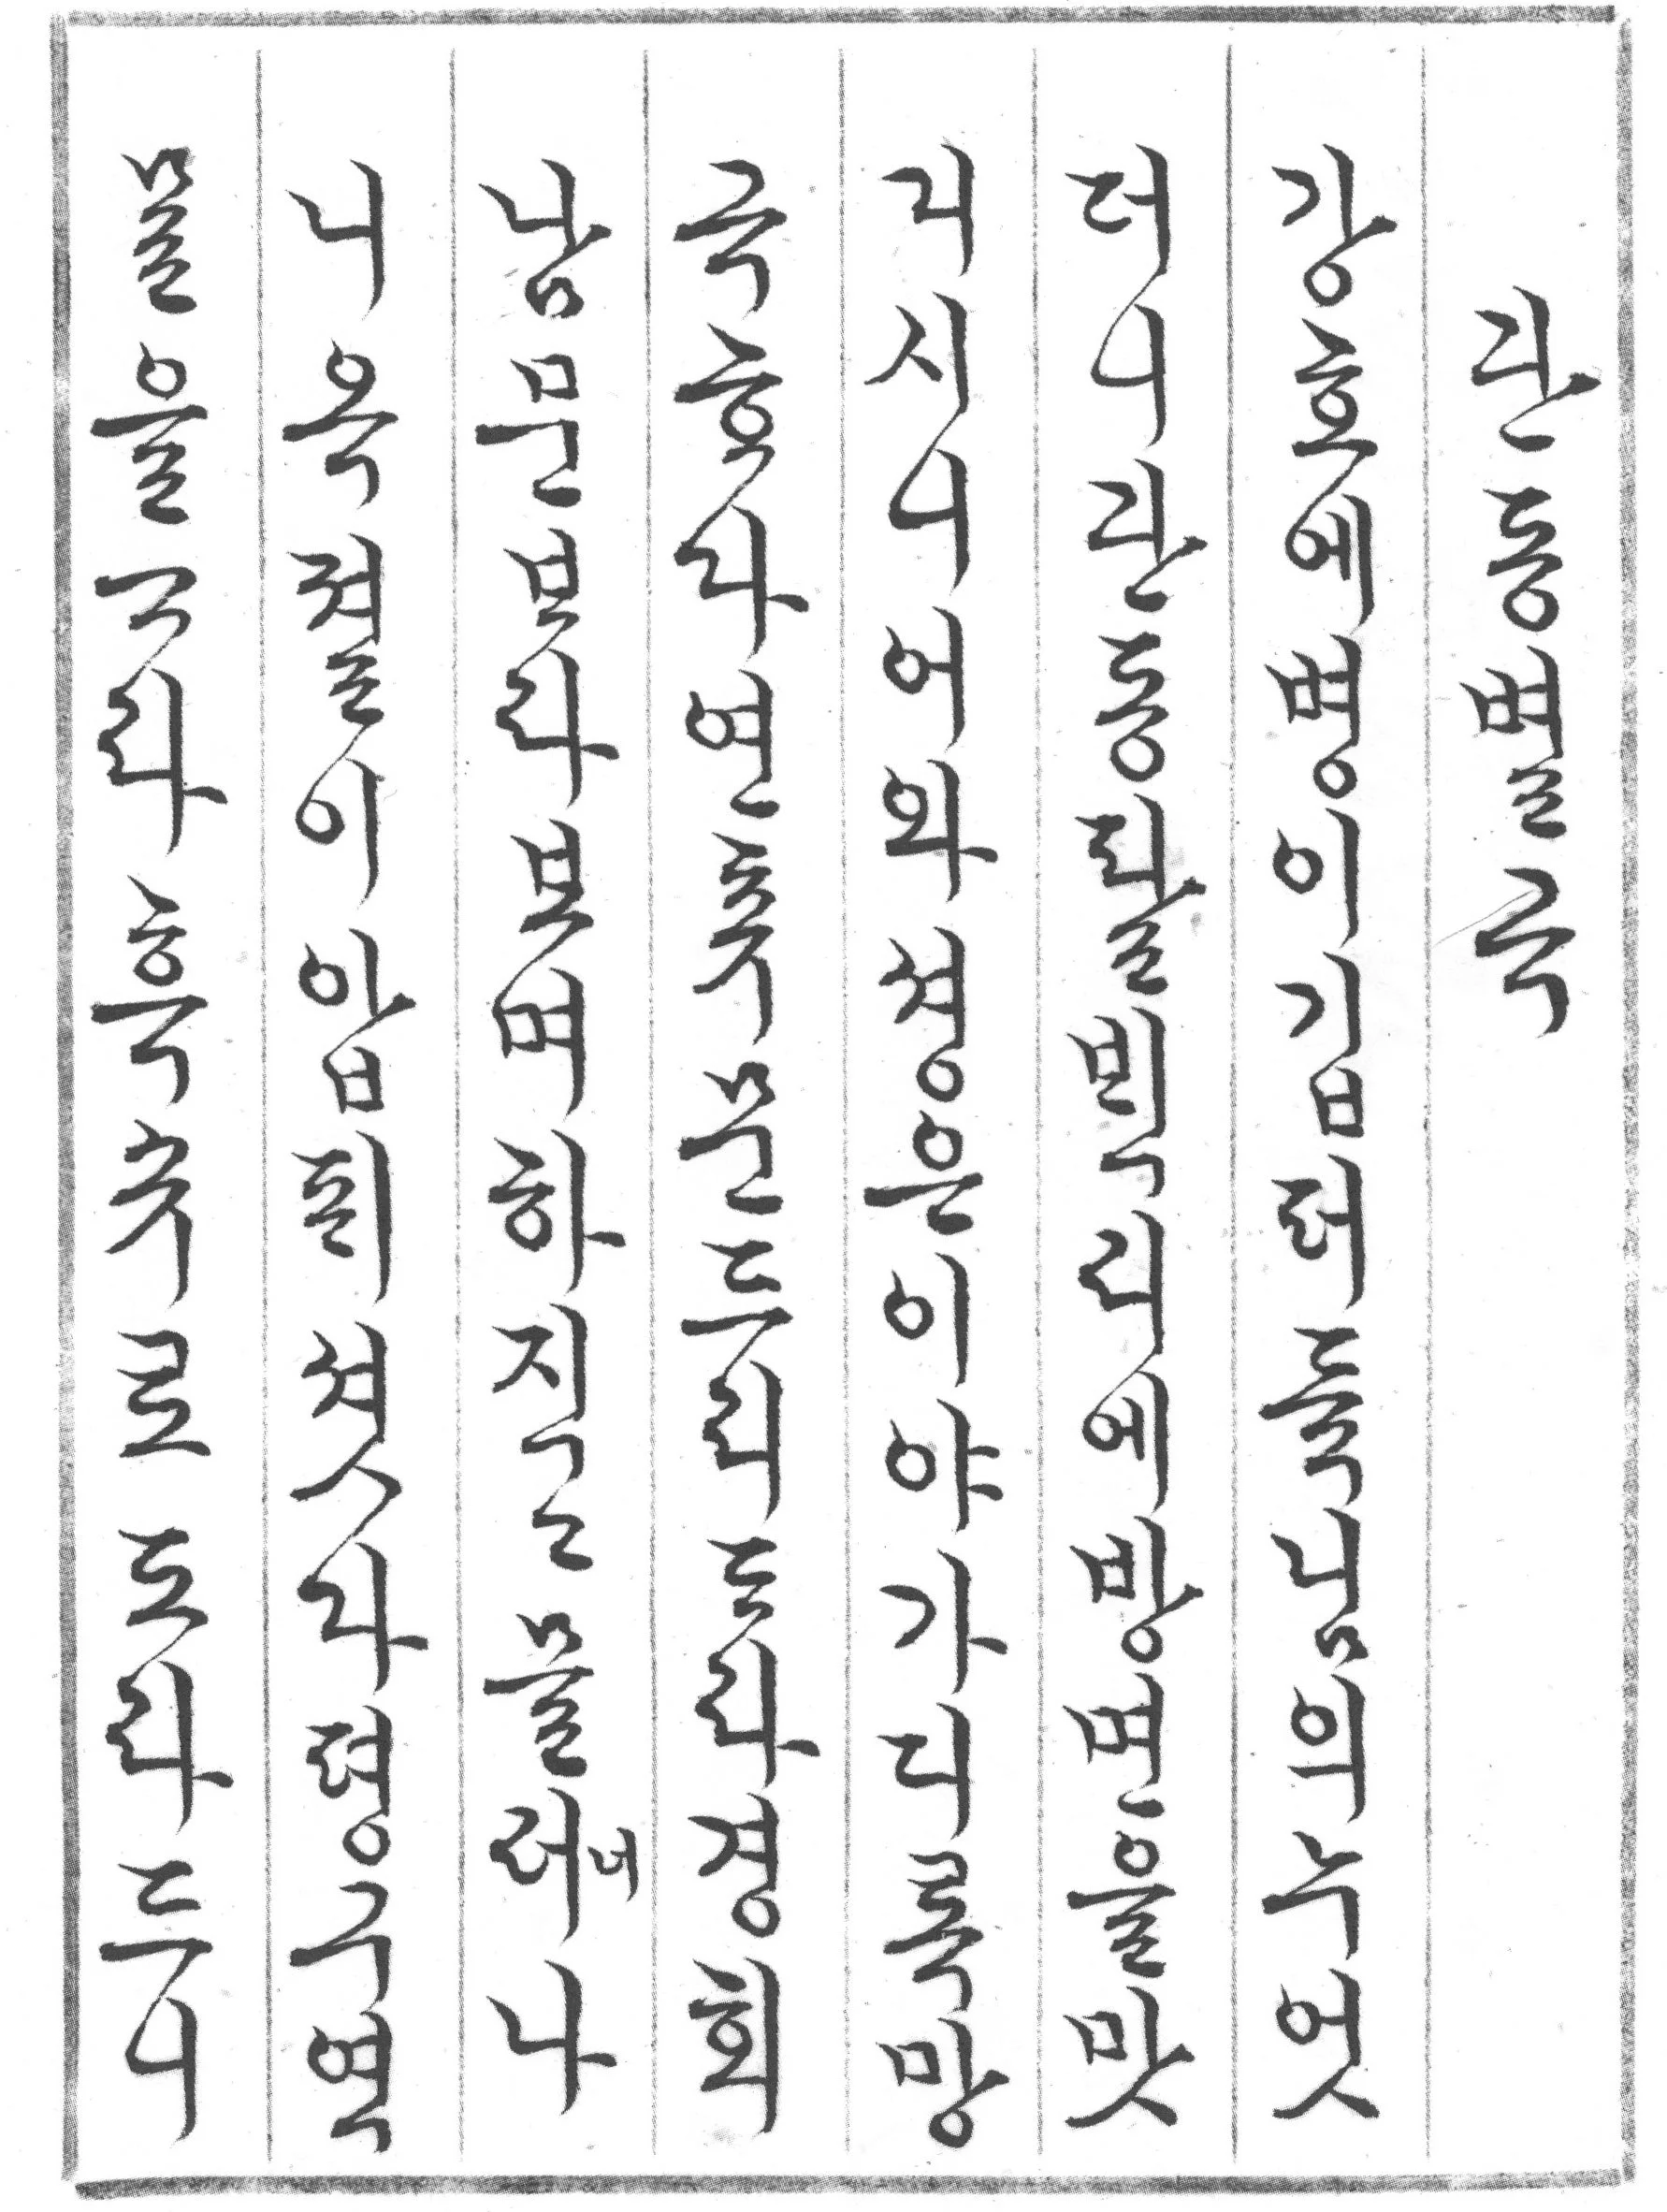 관동별곡
강호에병이깁퍼듁님의누엇
더니관동팔ᄇᆡᆨ리에방면을맛
디시니어와셩은이야가디록망
극ᄒᆞ다연츄문드리ᄃᆞ라경회
남문ᄇᆞ라보며하직고믈러너나
니옥졀이압ᄑᆡ셧다평구역
ᄆᆞᆯ을ᄀᆞ라흑슈로도라드니